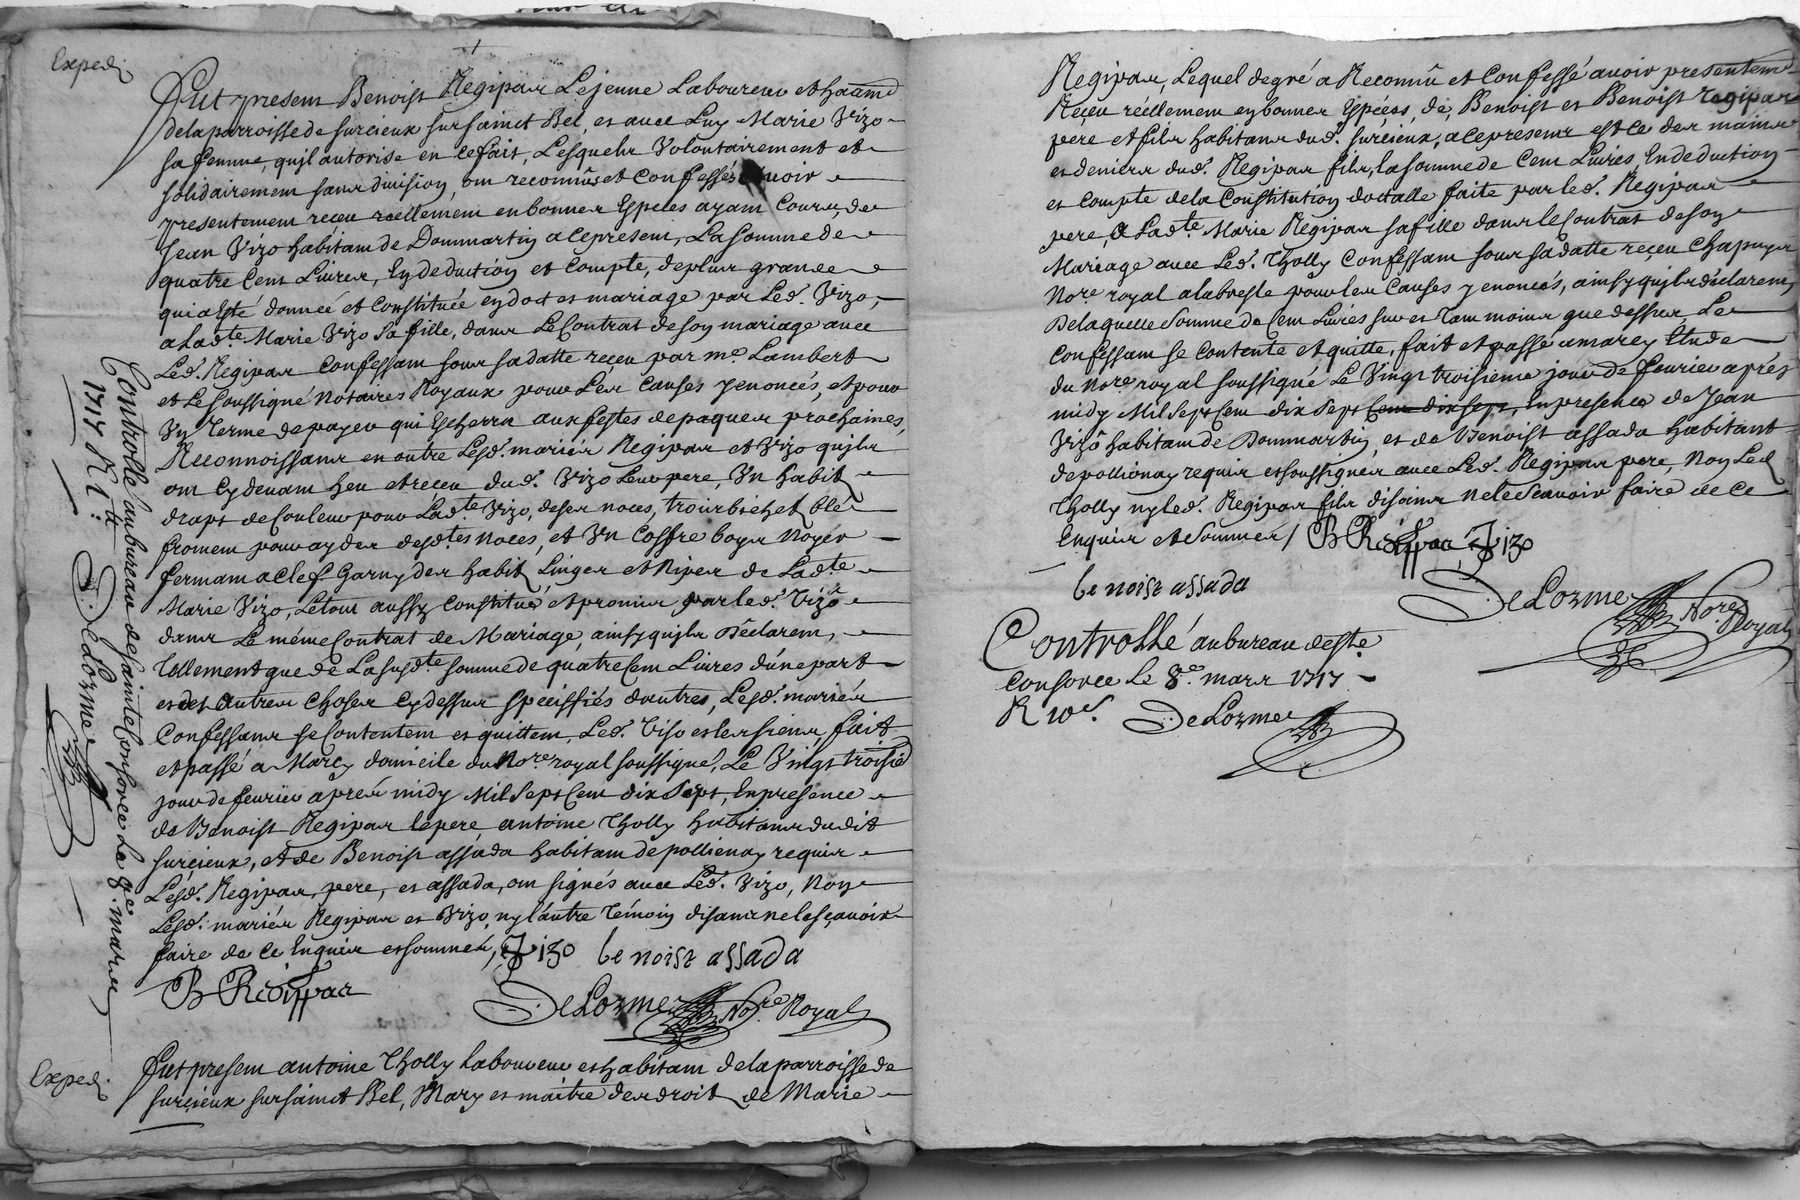 Exped.
Fut present Benoist Regipas Lejeune Laboureur et habitant
de la parroisse de surcieux sur sainct Bel, et avec Luy Marie Vizo
sa femme, qu'il autorise en ce fait, Lesquels Volontairement et
solidairement sans division, ont reconnûs et confessés avoir
presentement receu reéllement en bonnes Especes ayant Cours, de
Jean Vizo habitant de Dommartin a ce present, La somme de
quatre Cent Livres, En deduction et Compte, de plus grande
qui a Esté donnée et Constituée en dot et mariage par Led. Vizo,
a Lad.te Marie Vizo sa fille, dans Le Contrat de son mariage avec
Led. Regipas Confessant sous sa datte receu par me. Lambert
et Le soussigné Notaires Royaux pour Les Causes y enoncés, et pour
Un Terme de payer qui Escherra aux festes de paques prochaines,
Reconnoissans en outre Lesd. mariés Regipas et Vizo qu'ils
ont Cy devant heu et receu dud. Vizo Leur pere, Un habit
draps de Couleur pour Lad.te Vizo, de ses noces, trois bichet blé
froment pour ayder desd.tes Noces, et Un Coffre boys Noyer
fermant a Clef Garny des habit Linges et Nipes de Lad.te
Marie Vizo, Le tout aussy Constitué et promis par led. Vizo
dans Le même Contrat de Mariage, ainsy qu'ils Déclarent,
tellement que de La susd.te somme de quatre Cent Livres d'une part
et des Autres Choses Cy dessus speciffiés d'autres, Lesd. mariés
Confessans se Contentent et quittent, Led. Viso et les siens, fait
et passé a Marcy domicile du No.re royal soussigné, Le Vingt troisie
jour de fevrier aprés midy Mil Sept Cent dix Sept, En presence
de Benoist Regipas le pere, antoine Tholly habitans dudit
surcieux, et de Benoist assada habitant de pollienay requis
Lesd. Regipas, pere, et assada, ont signés avec Led. Vizo, Non
Lesd. mariés Regipas et Vizo, ny l'autre Témoin disans ne le sçavoir
faire de ce Enquis et sommés, J Vizo benoist assada
B Regippas
DeLorme No.re Royal
Controllé au bureau de sainte Consorce Le 8.e mars
1717 R 1 tt
DeLorme
Exped.
Fut present antoine Tholly laboureur et habitant de la parroisse de
surcieux sur sainct Bel, Mary et maitre des droit de Marie
Regipas, Lequel de gré a Reconnû et Confessé avoir presentem
Receu réellement en bonnes Especes, de, Benoist et Benoist regipas
pere et fils habitans dud. surcieux, a ce presens et ce des mains
et deniers dud. Regipas fils, la somme de Cent Livres, En deduction
et Compte de la Constitution doctalle faite par led. Regipas
pere, a Lad.te Marie Regipas sa fille dans le Contrat de son
Mariage avec Led. Tholly Confessant sous sa datte receu Chapuys
No.re royal a labresle pour les Causes y enoncés, ainsy qu'ils déclarent,
De laquelle somme de Cent Livres sur et Tant moins que dessus, Le
Confessant se Contente et quitte, fait et passé a marcy Etude
du No.re royal soussigné Le Vingt troisieme jour de fevrier aprés
midy Mil Sept Cent dix Sept Cent dix sept, En presence de Jean
Vizo habitant de Dommartin, et de Benoist assada habitant
de pollionay requis et soussignés avec Led. Regipas pere, Non Led
Tholly ny led. Regipas fils disans ne le Scavoir faire de ce
Enquis et Sommés / B Regippas J Vizo
benoist assada
DeLorme No.re Royal
Controllé au bureau de ste
Consorce Le 8.e mars 1717
R 10 s.
DeLorme